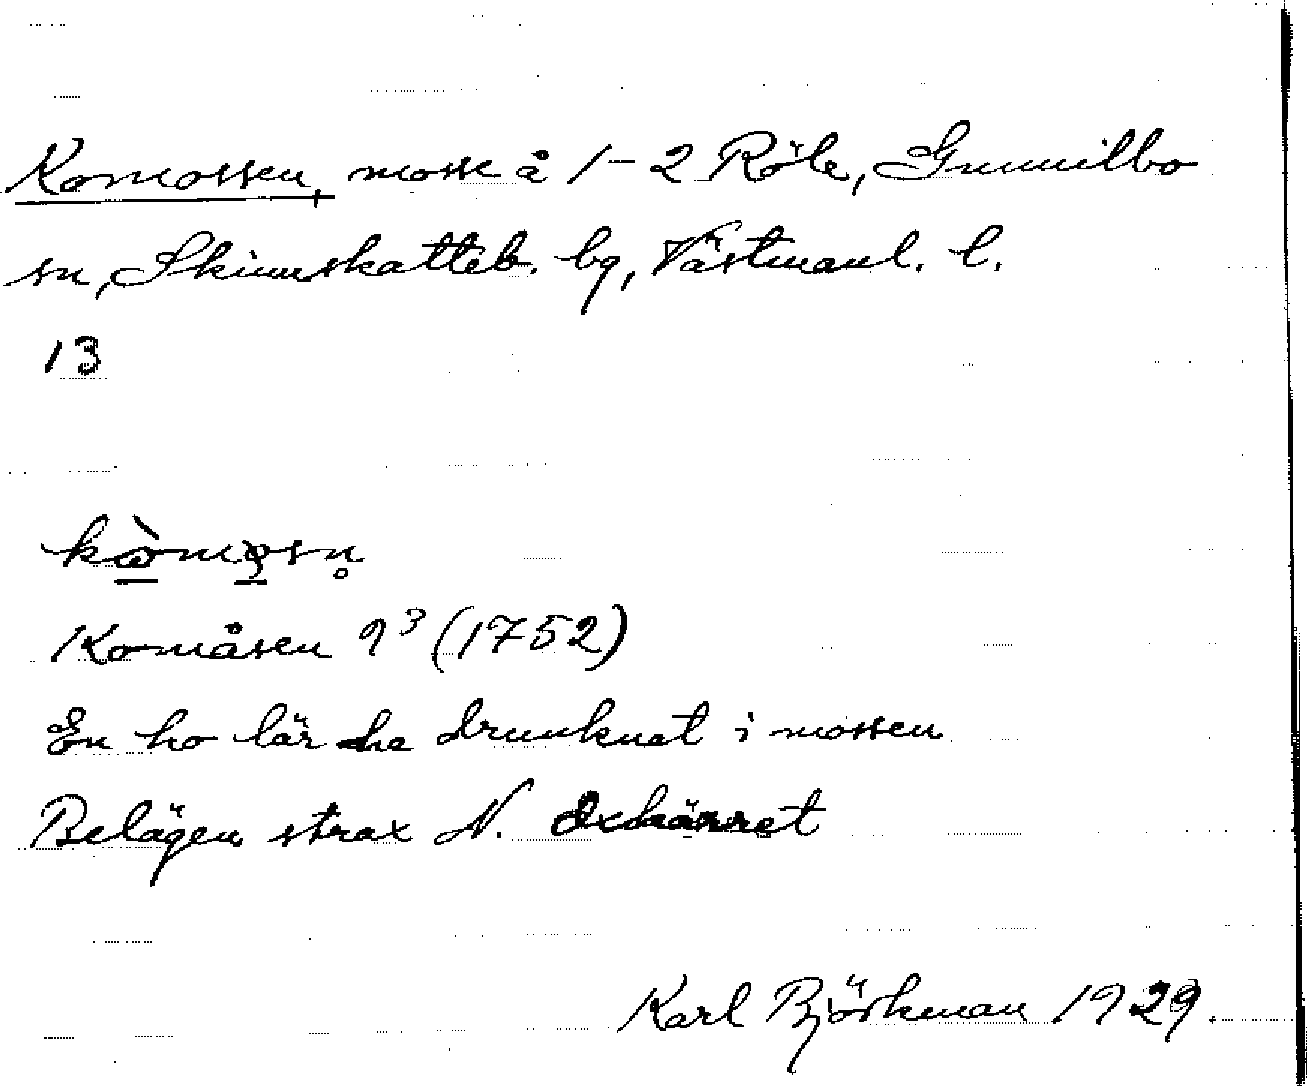 Komossen, mosse å 1-2 Röle, Gunnilbo
sn, Skinnskatteb. bg, Västmanl. l.
13
Komåsen 9³ (1752)
En ko lär ha drunknat i mossen
Belägen strax N. Oxkärret
Karl Björkman 1929.